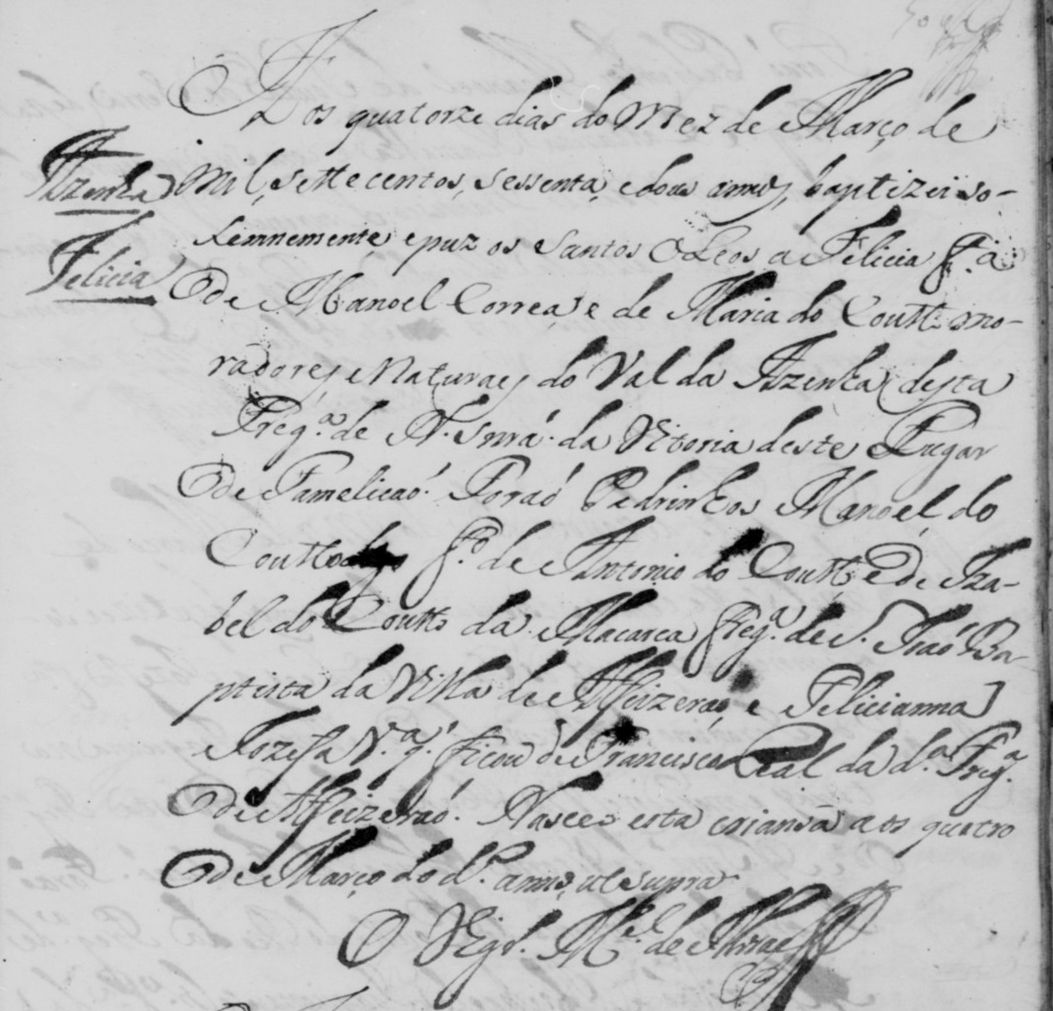 Aos quatorze dias do Mez de Março de
Azenha
mil, e settecentos, sessenta, e dous annos, baptizei so-
lemnemente, e puz os Santos Oleos a Felicia f.ª
Felicia
de Manoel Correa, e de Maria do Coutto mo-
radores, e naturaes do Val da Azenha desta
Freg.ª de N. Snrá. da Vitoria deste Lugar
de Famelicaó. Foraó Pedrinhos Manoel do
Coutto f.º de Antonio do Coutto, e de Iza-
bel do Coutto da Macarca freg.ª de S. Joaó Ba-
ptista da Villa de Alfeizeraó, e Felicianna
Jozefa V.ª q. ficou de Francisco Leal da d.ª Freg.ª
de Alfeizeraó. Nasceo esta criansa aos quatro
de Março do d.º anno, ut supra
O Vigr.º M.el de